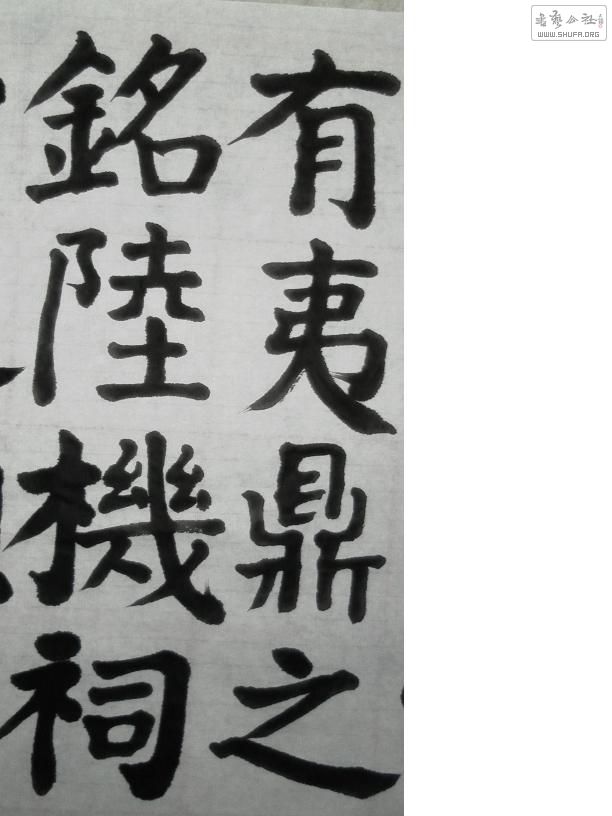 有夷鼎之
銘陸機祠
书艺公社
WWW.SHUFA.ORG